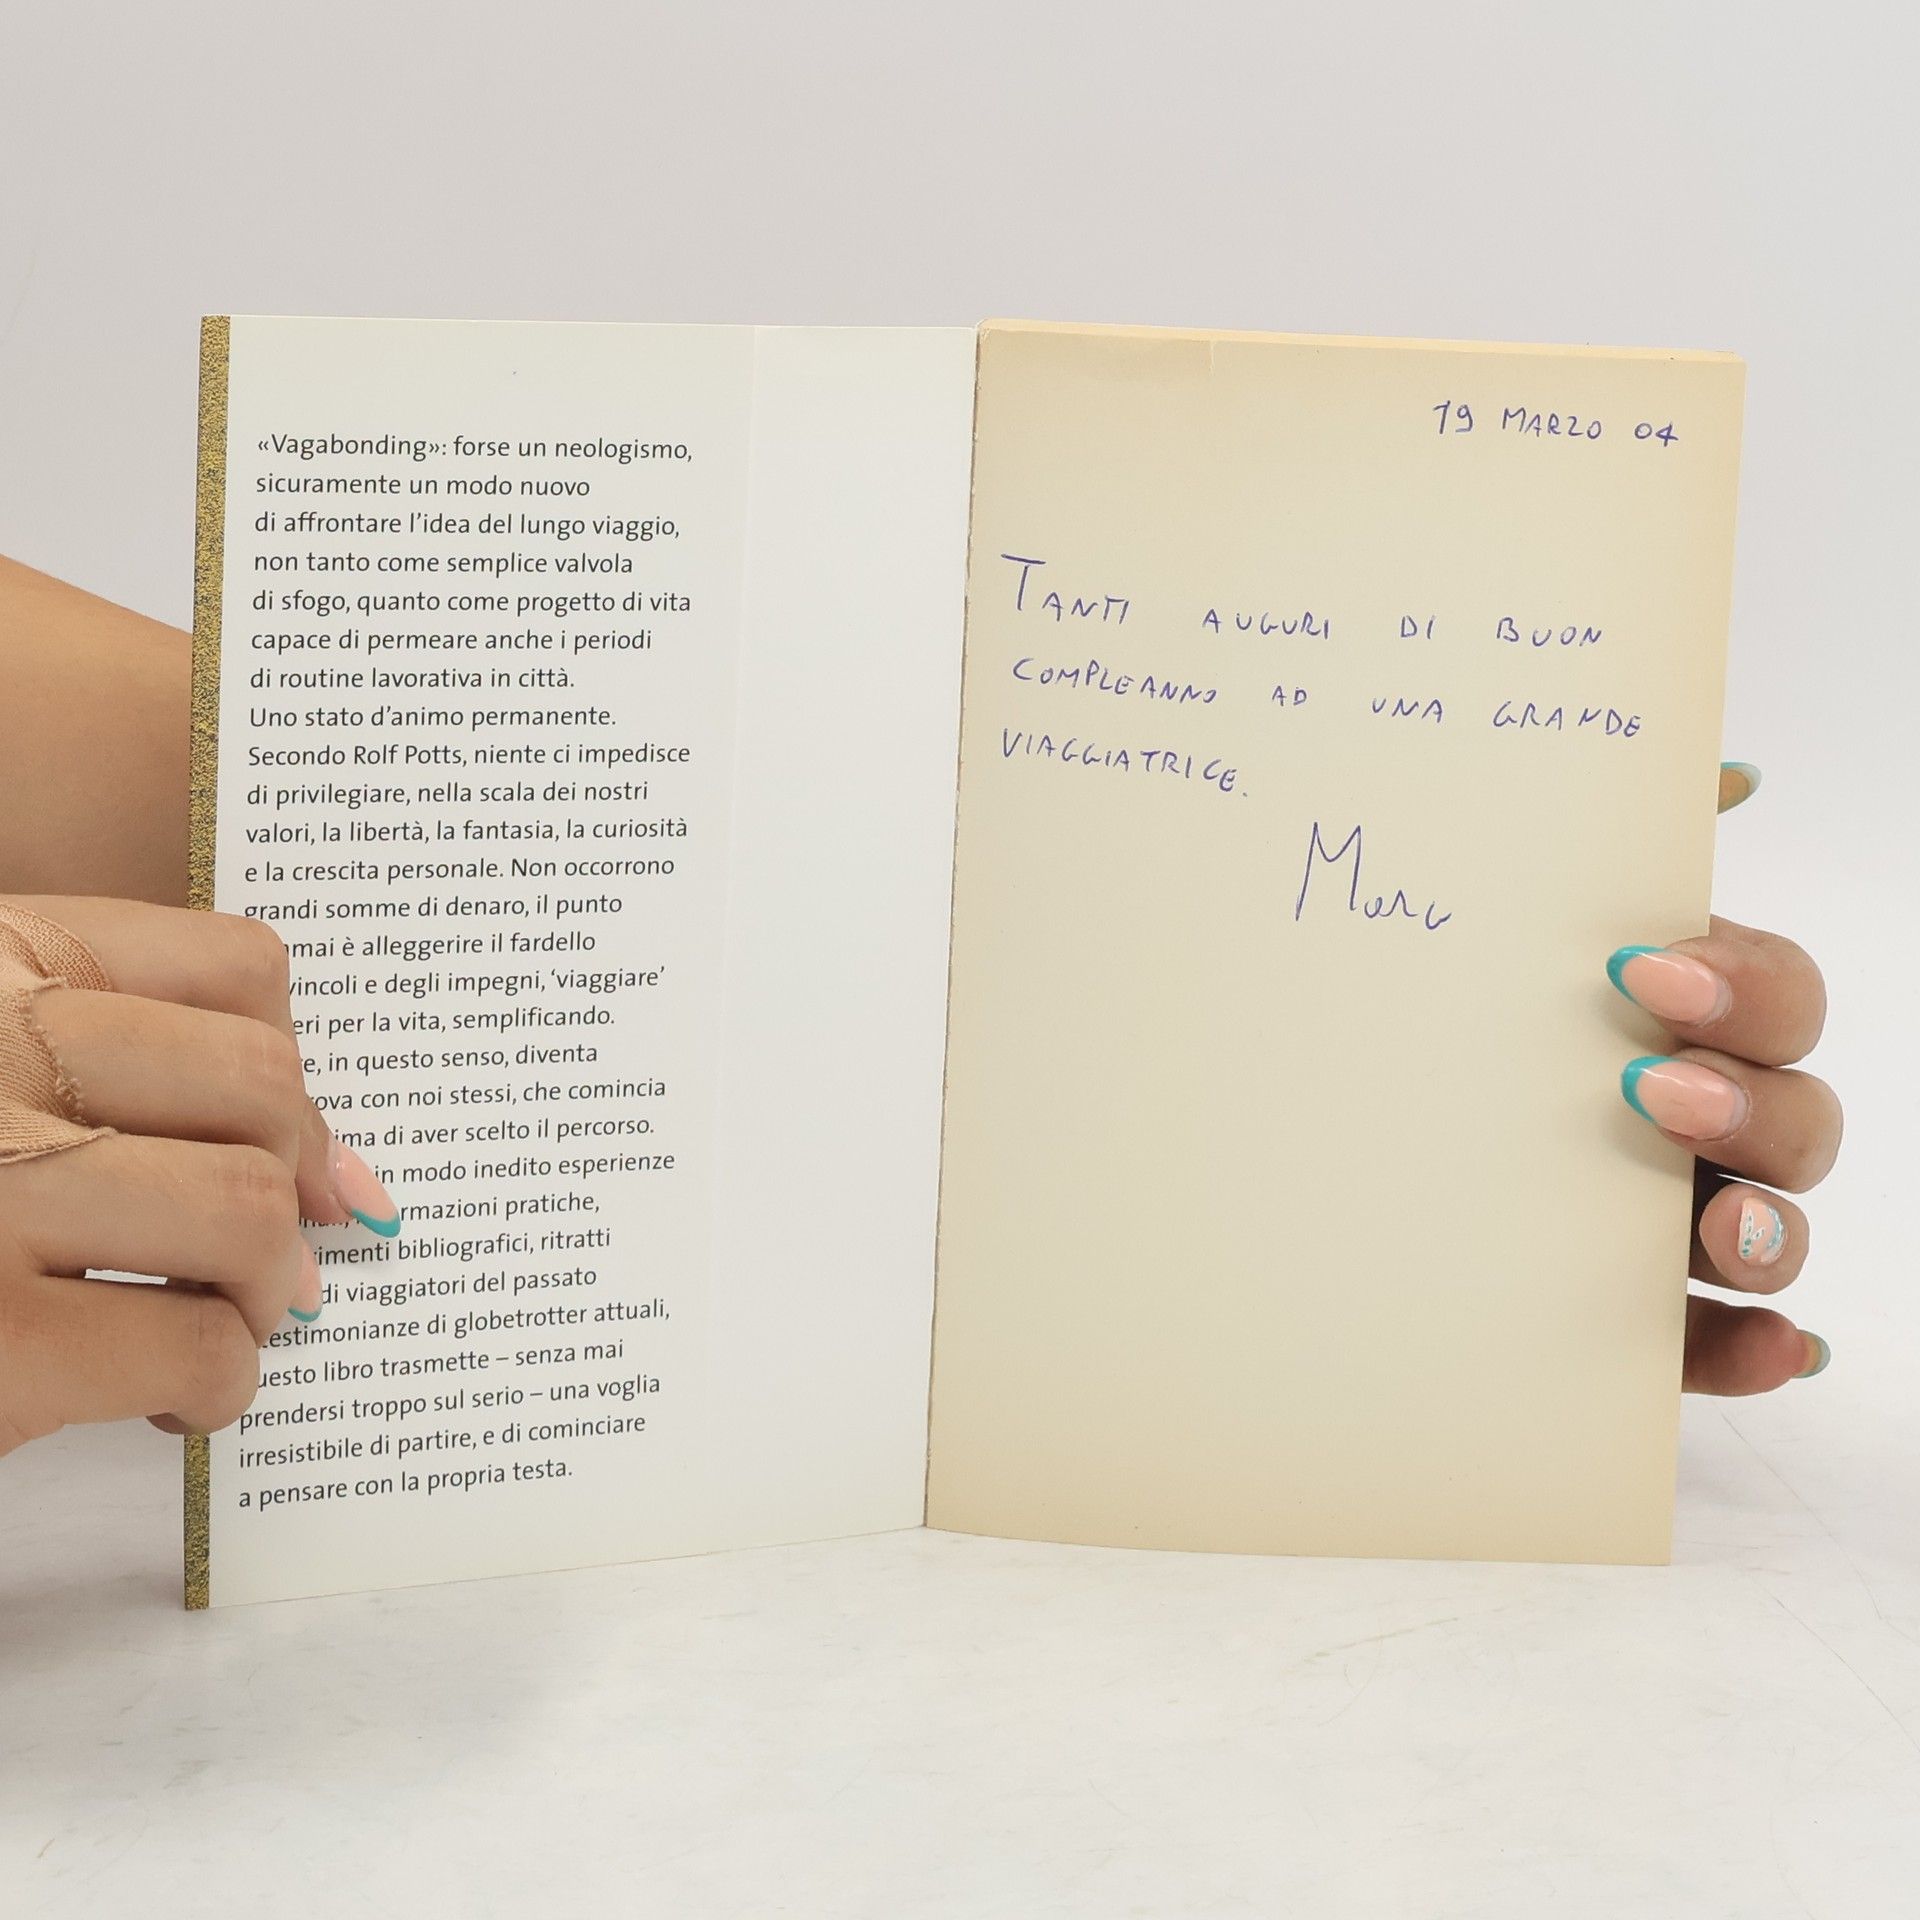 «Vagabonding»: forse un neologismo,
sicuramente un modo nuovo
di affrontare l'idea del lungo viaggio,
non tanto come semplice valvola
di sfogo, quanto come progetto di vita
capace di permeare anche i periodi
di routine lavorativa in città.
Uno stato d'animo permanente.
Secondo Rolf Potts, niente ci impedisce
di privilegiare, nella scala dei nostri
valori, la libertà, la fantasia, la curiosità
e la crescita personale. Non occorrono
grandi somme di denaro, il punto
è alleggerire il fardello
e degli impegni, 'viaggiare'
per la vita, semplificando.
in questo senso, diventa
con noi stessi, che comincia
di aver scelto il percorso.
in modo inedito esperienze
pratiche,
bibliografici, ritratti
di viaggiatori del passato
testimonianze di globetrotter attuali,
questo libro trasmette – senza mai
prendersi troppo sul serio – una voglia
irresistibile di partire, e di cominciare
a pensare con la propria testa.
19 MARZO 04
TANTI AUGURI DI BUON
COMPLEANNO AD UNA GRANDE
VIAGGIATRICE.